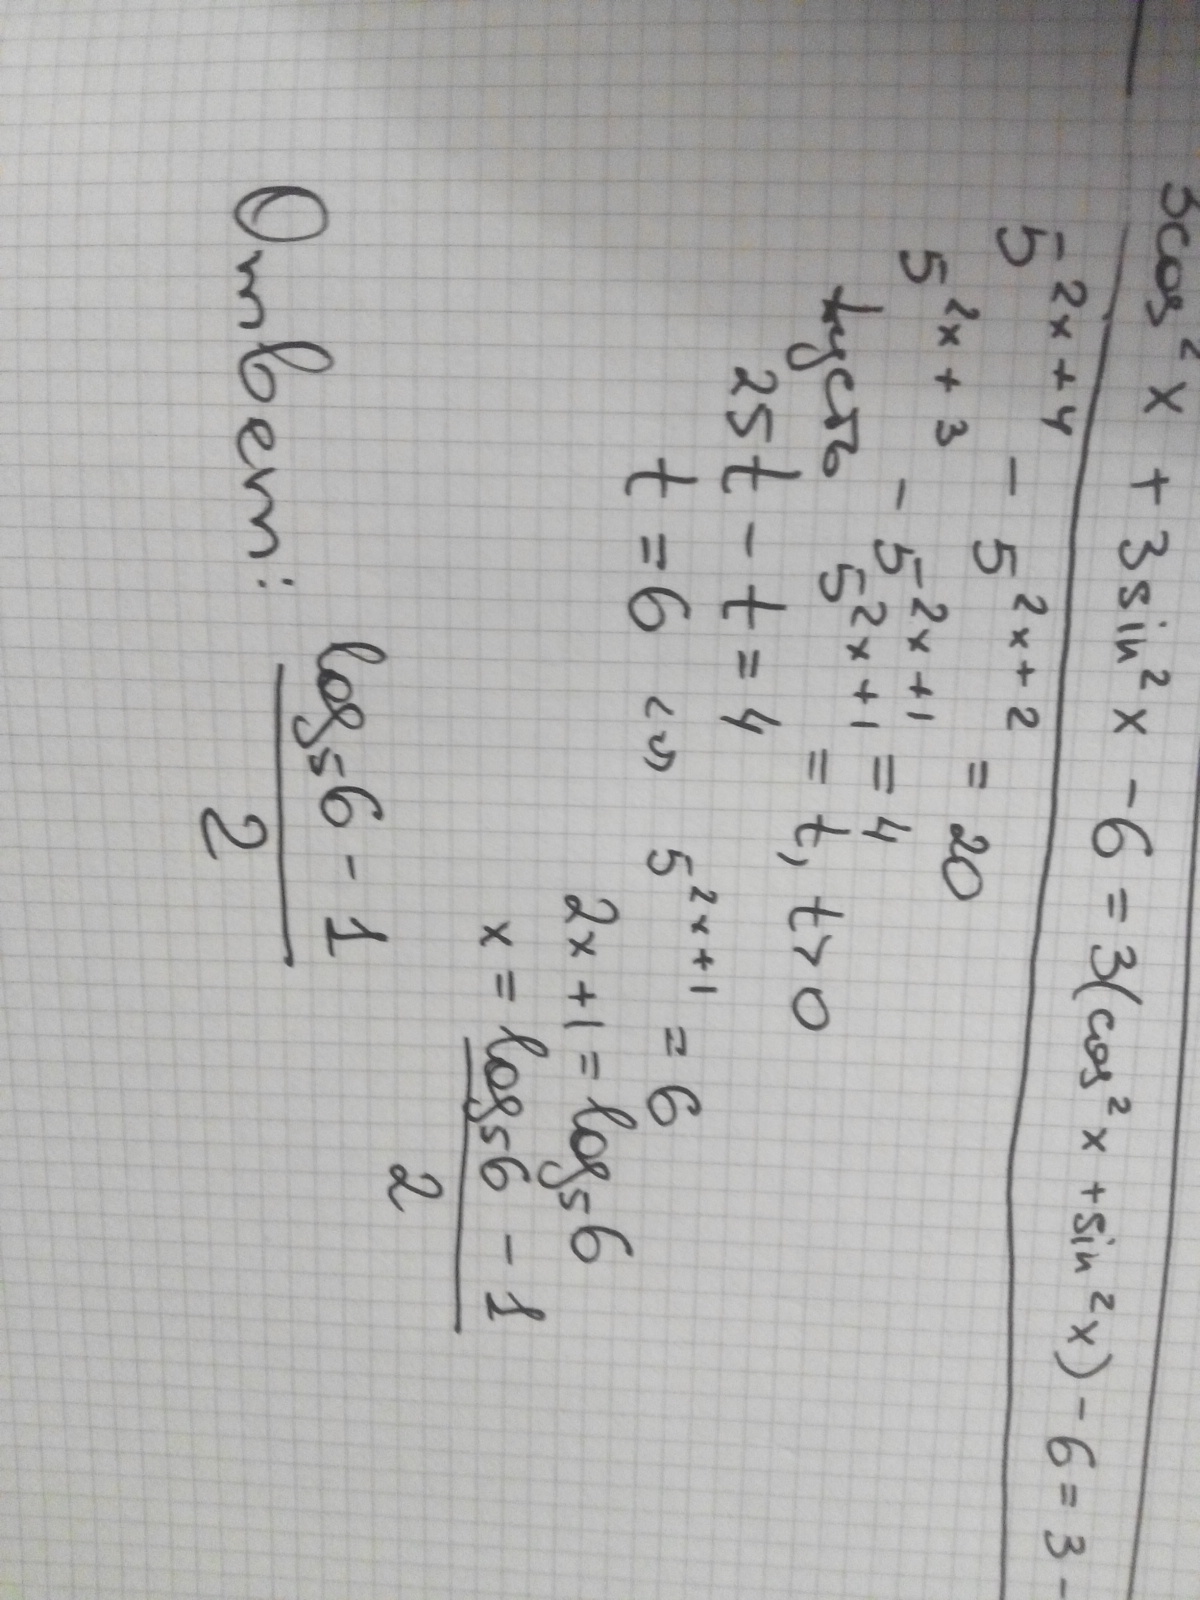 3cos² x + 3sin² x - 6 = 3(cos² x + sin² x) - 6 = 3 -
5²ˣ⁺⁴ - 5²ˣ⁺² = 20
5²ˣ⁺³ - 5²ˣ⁺¹ = 4
пусть 5²ˣ⁺¹ = t, t > 0
25t - t = 4
t = 6 5²ˣ⁺¹ = 6
2x + 1 = log₅6
x = log₅6 - 1
2
Ответ: log₅6 - 1
2